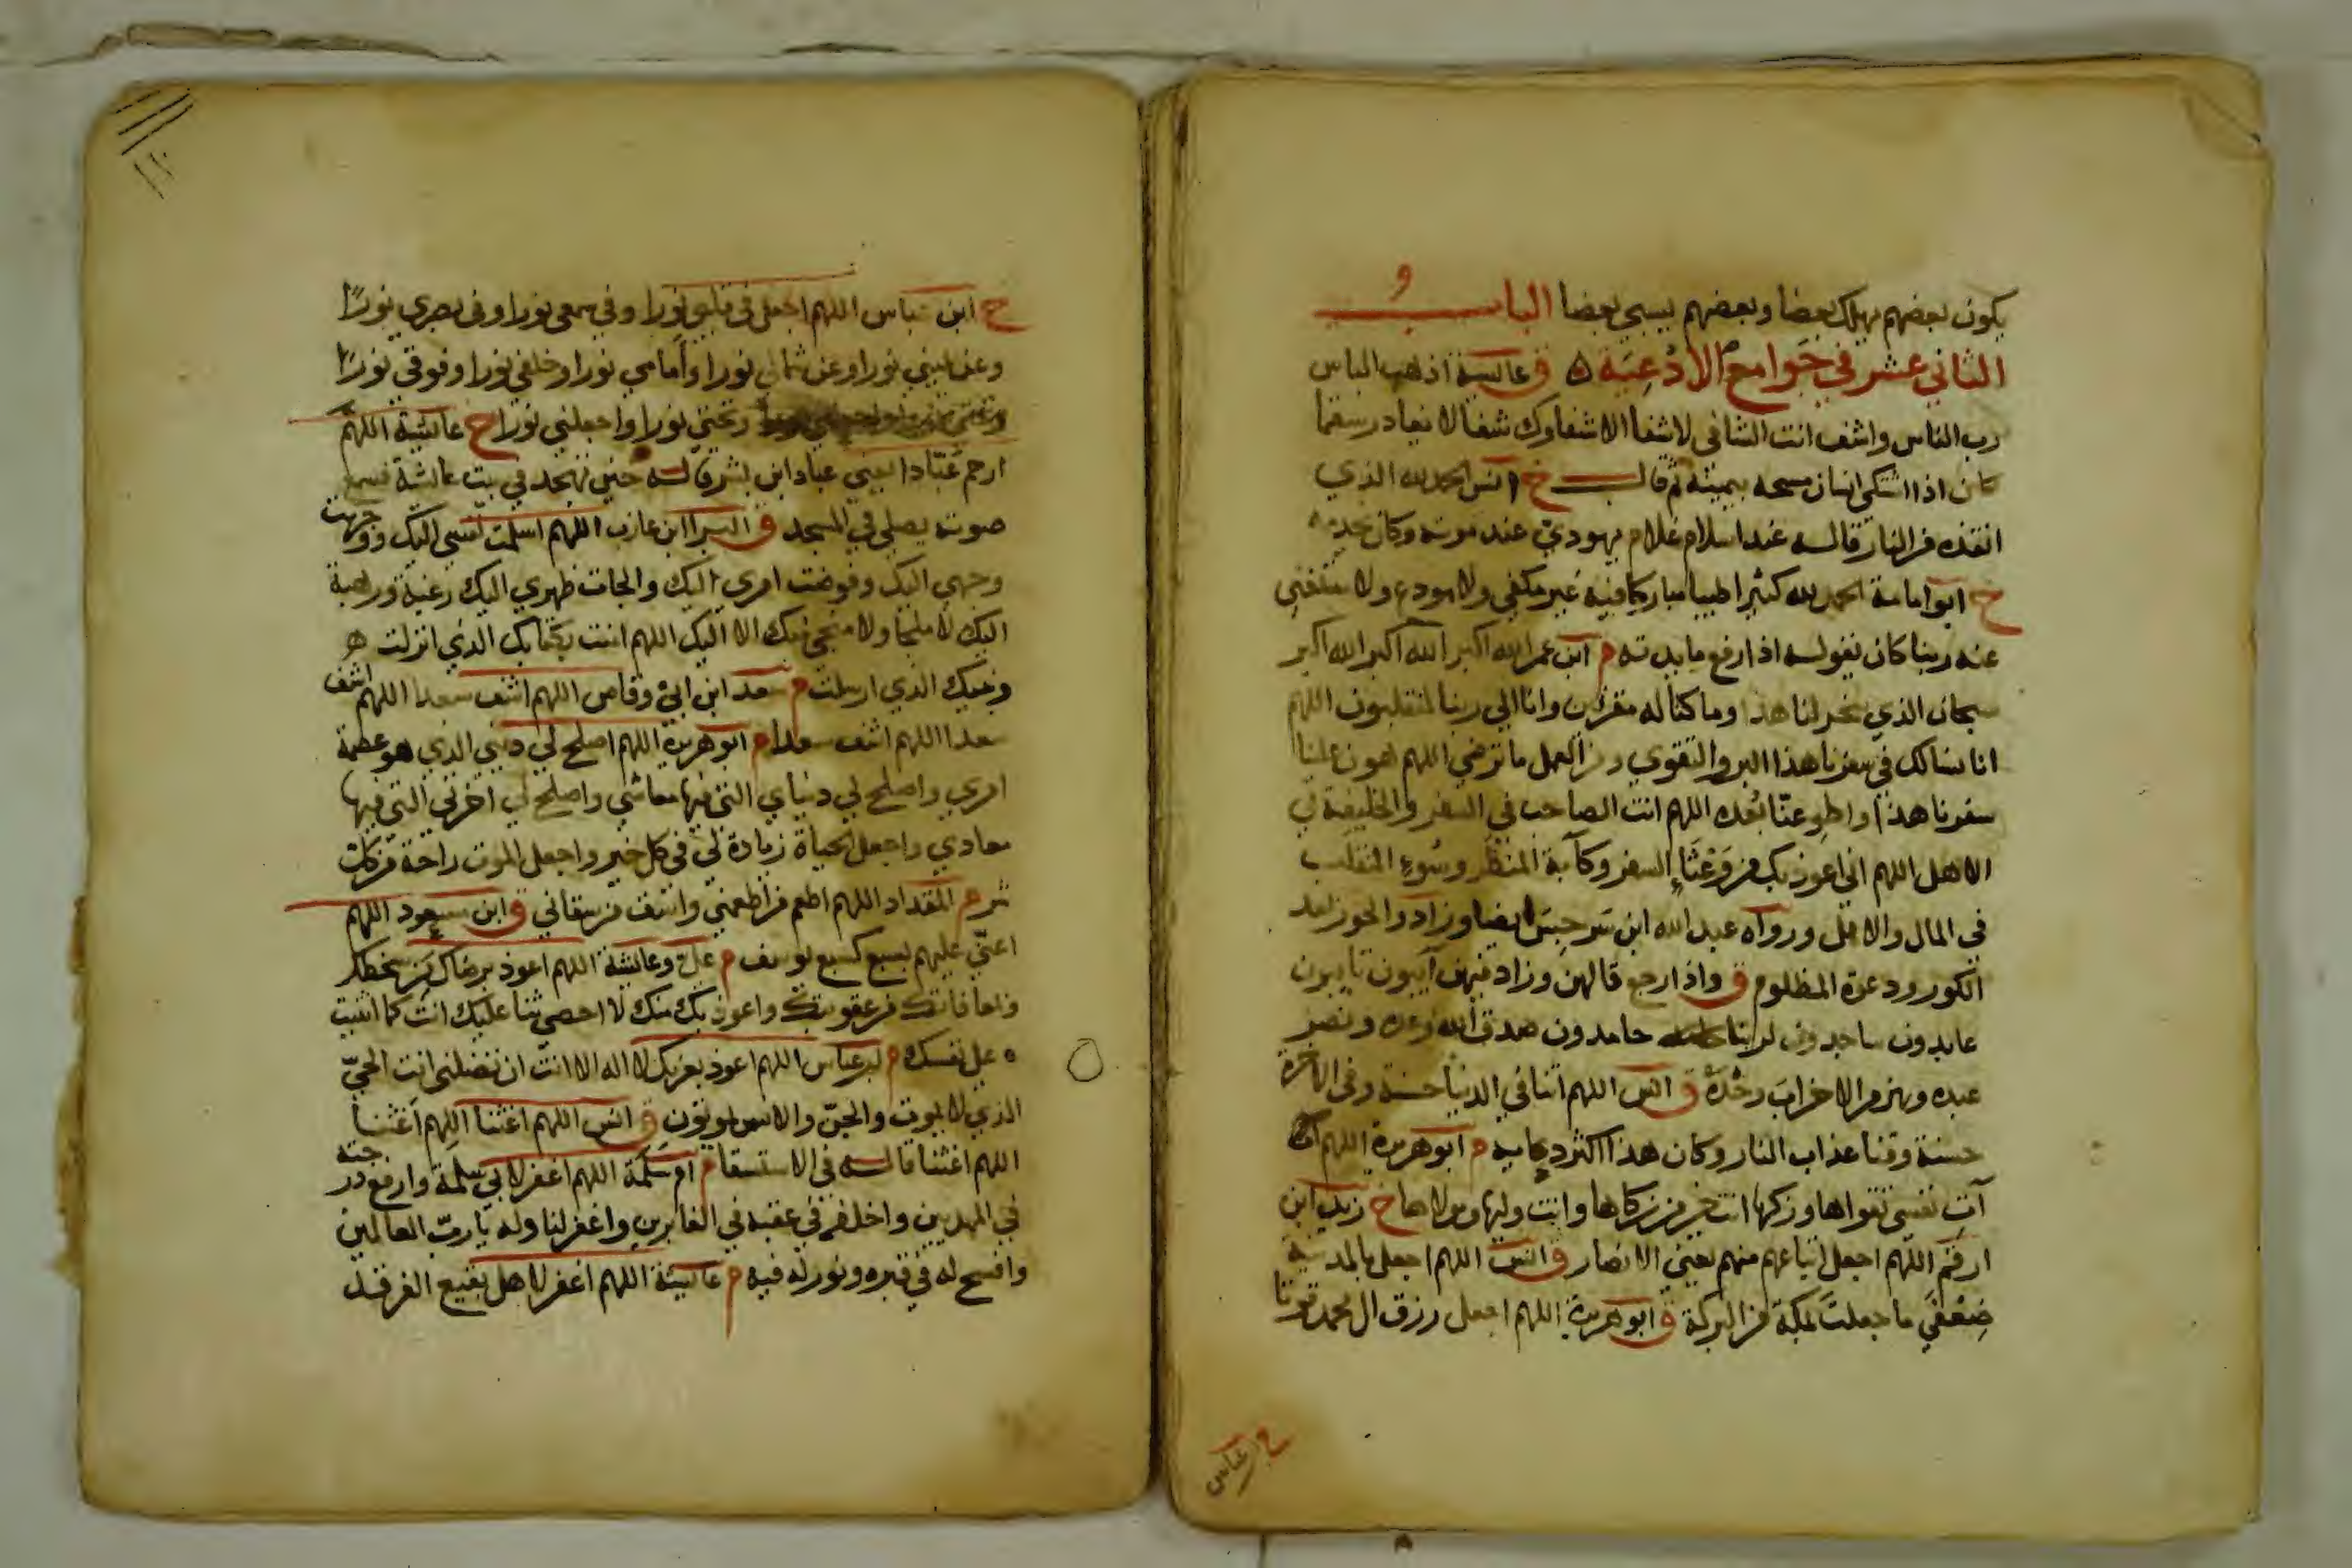 يكون بعضهم يهلك بعضا وبعضهم يسبي بعضا الباب
الثاني عشر في جوامع الادعية ق عائشة اذهب الباس
رب الناس واشف انت الشافي لا شفا الا شفاوك شفا لا يغادر سقما
كان اذا اشتكى انسان مسحه بيمينه ثم قال خ انس الحمد لله الذي
انقذه من النار قاله عند اسلام غلام يهودي عند موته وكان يخدمه
خ ابو امامة الحمد لله كثيرا طيبا مباركا فيه غير مكفي ولا مودع ولا مستغنى
عنه ربنا كان يقوله اذا رفع مايدته م ابن عمر الله اكبر الله اكبر الله اكبر
سبحان الذي سخر لنا هذا وما كنا له مقرنين وانا الى ربنا لمنقلبون اللهم
انا نسالك في سفرنا هذا البر والتقوى ومن العمل ما ترضى اللهم هون علينا
سفرنا هذا واطو عنا بعده اللهم انت الصاحب في السفر والخليفة في
الاهل اللهم اني اعوذ بك من وعثاء السفر وكآبة المنظر وسوء المنقلب
في المال والاهل ورواه عبد الله ابن سرجس ايضا وزاد والحور بعد
الكور ودعوة المظلوم ق واذا رجع قالهن وزاد فيهن آيبون تايبون
عابدون ساجدون لربنا حامدون صدق الله وعده ونصر
عبده وهزم الاحزاب وحده ق انس اللهم اتنا في الدنيا حسنة وفي الاخرة
حسنة وقنا عذاب النار وكان هذا اكثر دعايه م ابو هريرة اللهم
آت نفسي تقواها وزكها انت خير من زكاها وانت وليها ومولاها خ زيد ابن
ارقم اللهم اجعل اتباعهم منهم يعني الانصار ق انس اللهم اجعل بالمدينة
ضعفي ما جعلت بمكة من البركة ق ابو هريرة اللهم اجعل رزق ال محمد قوتا
خ ابن عباس
خ ابن عباس اللهم اجعل في قلبي نورا وفي سمعي نورا وفي بصري نورا
وعن يميني نورا وعن شمالي نورا وأمامي نورا وخلفي نورا وفوقي نورا
وتحتي نورا واجعلني نورا خ عائشة اللهم
ارحم عبّادا يعني عباد ابن بشر قاله حين تهجد في بيت عائشة فسمع
صوته يصلي في المسجد ق البرا ابن عازب اللهم اسلمت نفسي اليك ووجهت
وجهي اليك وفوضت امري اليك والجات ظهري اليك رغبة ورهبة
اليك لا ملجا ولا منجى منك الا اليك اللهم امنت بكتابك الذي انزلت
ونبيك الذي ارسلت م سعد ابن ابي وقاص اللهم اشف سعدا اللهم اشف
سعدا اللهم اشف سعدا م ابو هريرة اللهم اصلح لي ديني الذي هو عصمة
امري واصلح لي دنياي التي فيها معاشي واصلح لي اخرتي التي فيها
معادي واجعل الحياة زيادة لي في كل خير واجعل الموت راحة من كل
شر م المقداد اللهم اطعم من اطعمني واسق من سقاني ق ابن مسعود اللهم
اعنّي عليهم بسبع كسبع يوسف م علي وعايشة اللهم اعوذ برضاك من سخطك
وبمعافاتك من عقوبتك واعوذ بك منك لا احصي ثنا عليك انت كما اثنيت
على نفسك م ابن عباس اللهم اعوذ بعزتك لا اله الا انت ان تضلني انت الحيّ
الذي لا يموت والجن والانس يموتون ق انس اللهم اغثنا اللهم اغثنا
اللهم اغثنا قاله في الاستسقا م ام سلمة اللهم اغفر لابي سلمة وارفع درجته
في المهديين واخلفه في عقبه في الغابرين واغفر لنا وله يا رب العالمين
وافسح له في قبره ونور له فيه م عائشة اللهم اغفر لاهل بقيع الغرقد